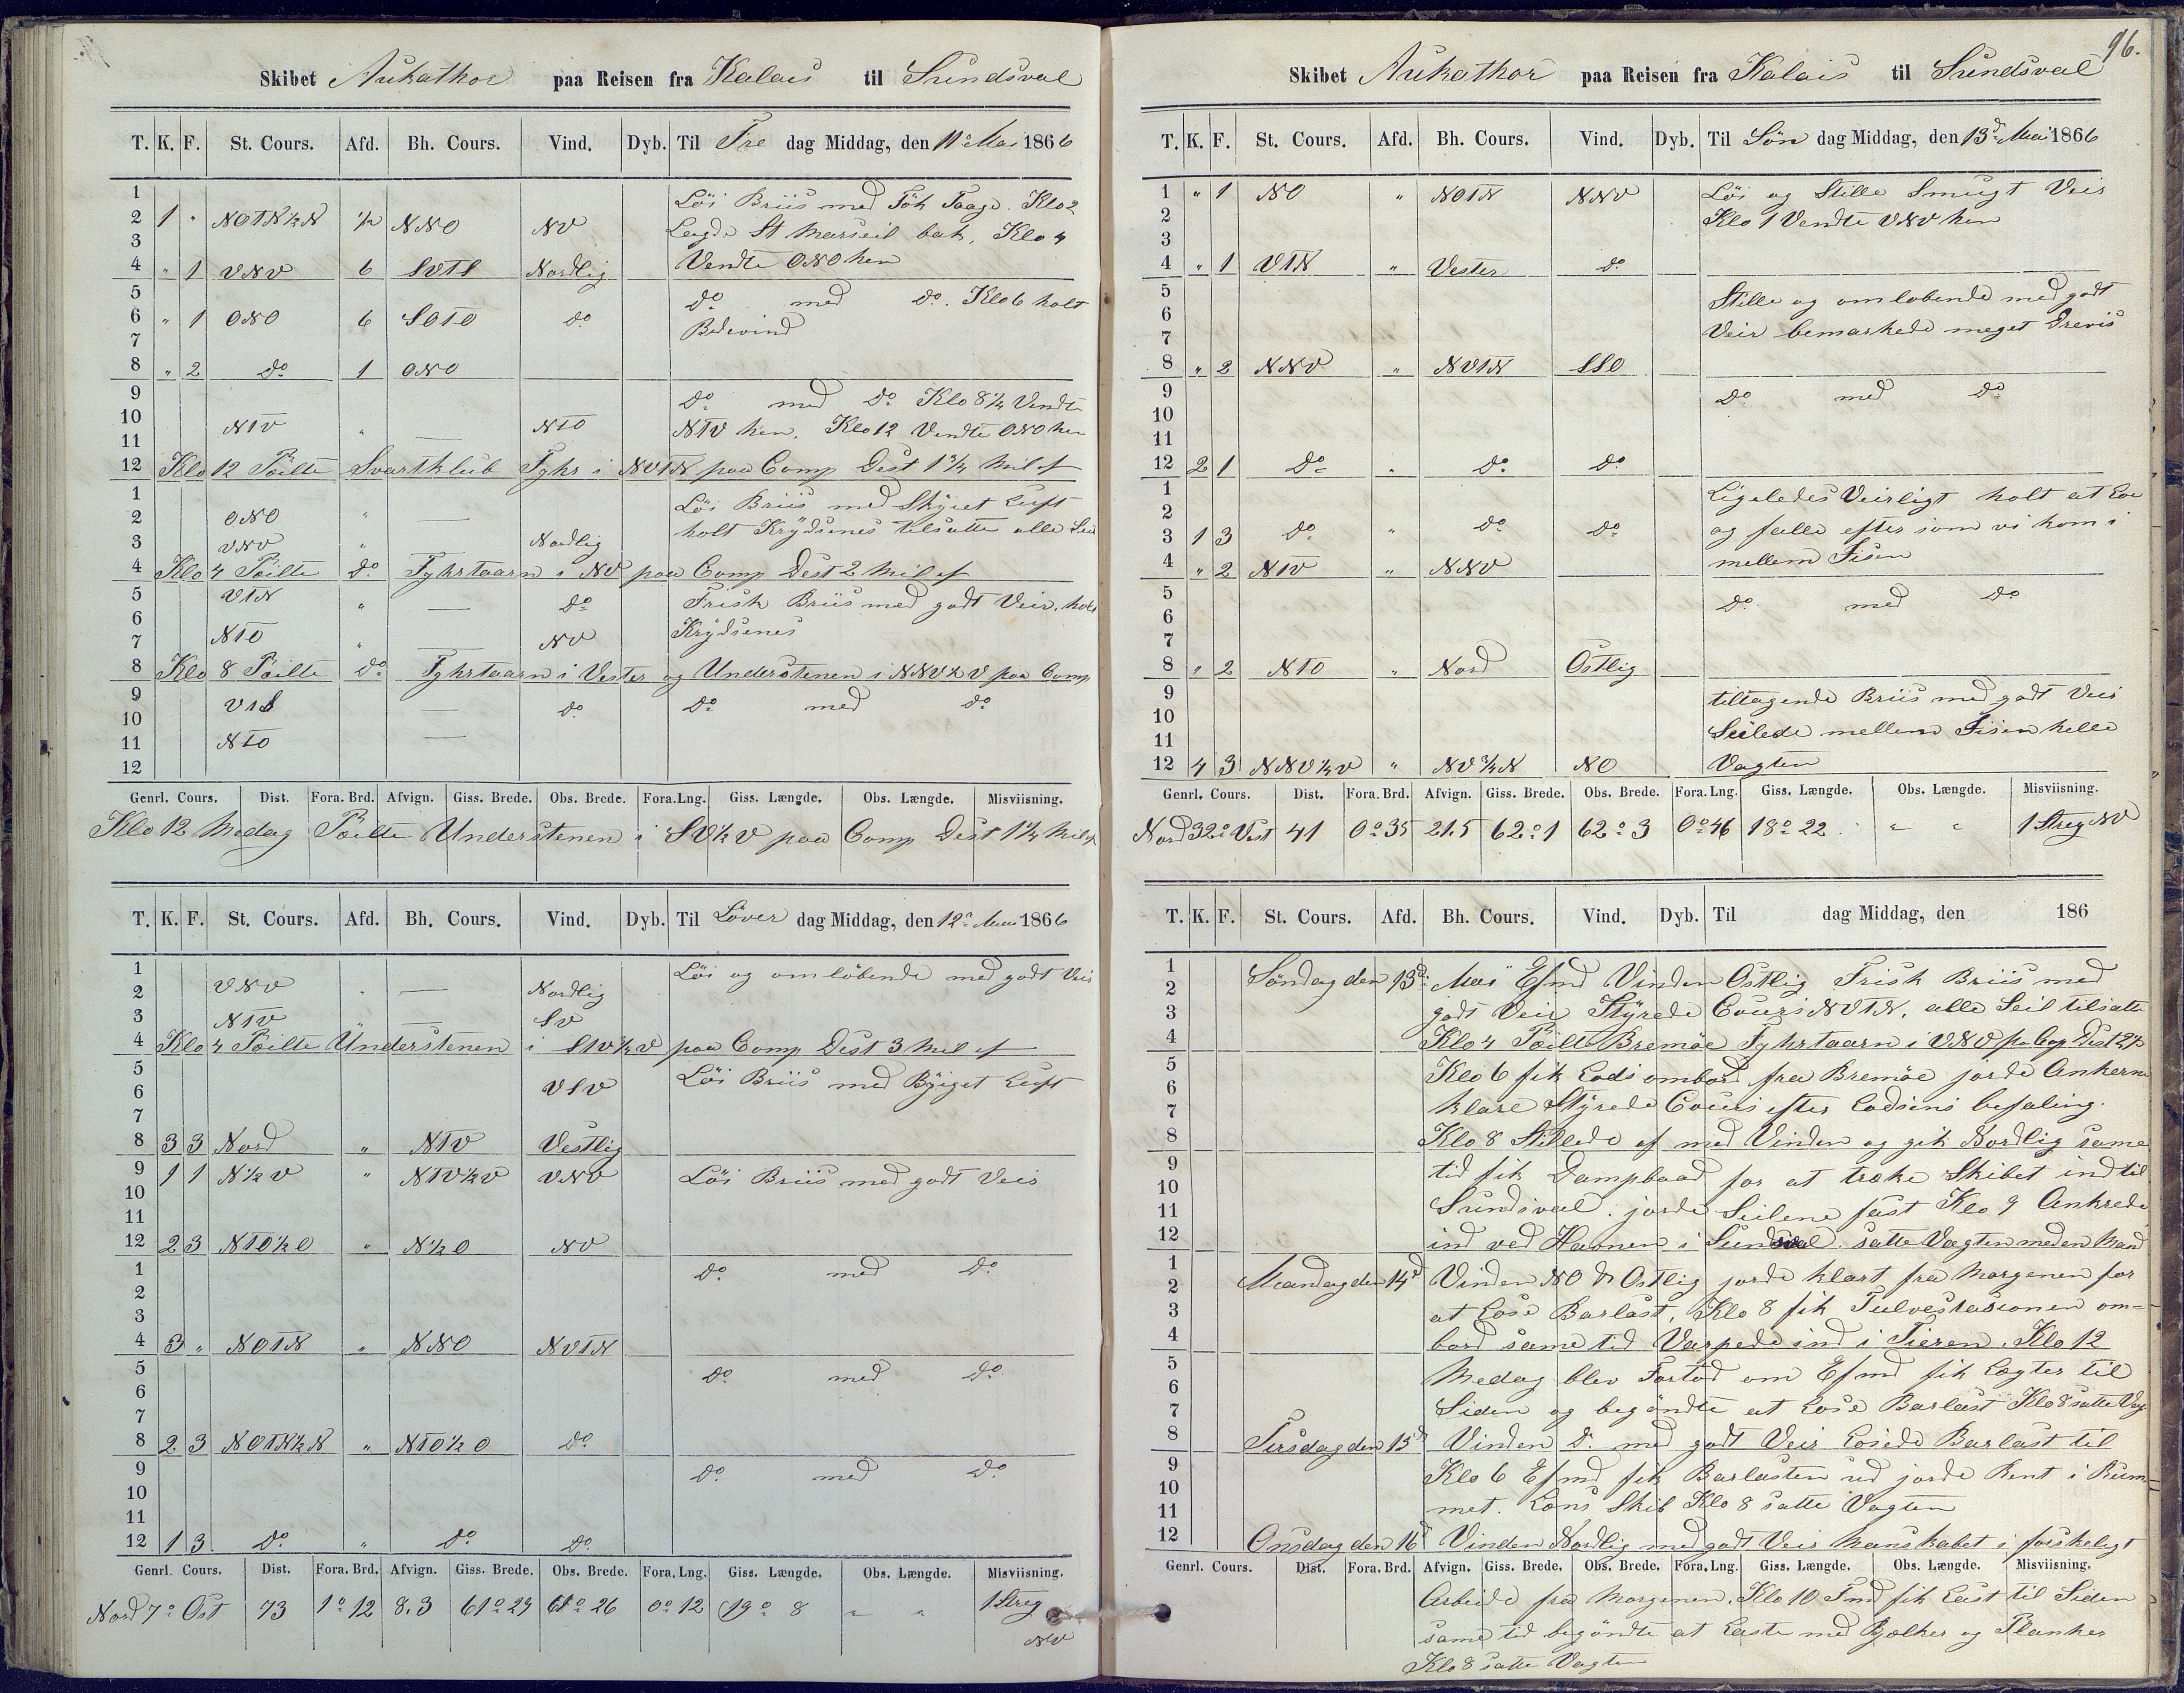 Skibet Aukathor paa Reisen fra Kalais til Sundsval
T. K. F. St. Cours. Afd. Bh. Cours. Vind. Dyb. Til Fre dag Middag, den 11te Mai 1866
1 Löi Briis med Tök Taage. Klo 2
2 1 " NOTN½N ½ NNO NV Lagde St Marseil bak, Klo 4
3
4 " 1 VNV 6 SVTS Nordlig Vendte ONO hen
5 do med do. Klo 6 holt
6 " 1 ONO 6 SOTO do Bidevind
7
8 " 2 do 1 ONO
9 do med do Klo 8½ Vendte
10 NTV " — NTO NTV hen. Klo 12 Vendte ONO hen
11
12 Klo 12 Peilte Svartklub Fyhr i NVTN paa Comp Dest 1¾ Mil af
1 Löi Briis med Skyet Luft
2 ONO " — holt Krydsenes tilsatte alle Seil
3 VNV " — Nordlig
4 Klo 4 Peilte do Fyhrtaarn i NV paa Comp Dest 2 Mil af
5 VTN " — do Frisk Briis med godt Veir, holt
6 Krydsenes
7 NTO " — NV
8 Klo 8 Peilte do Fyhrtaarn i Vester og Understenen i NNV½V paa Comp
9 VTS — do do med do
10
11 NTO —
12
Genrl. Cours. Dist. Fora. Brd. Afvign. Giss. Brede. Obs. Brede. Fora. Lng. Giss. Længde. Obs. Længde. Misviisning.
Klo 12 Medag Peilte Understenen i SV½V paa Comp Dest 1¼ Mil af
T. K. F. St. Cours. Afd. Bh. Cours. Vind. Dyb. Til Löver dag Middag, den 12te Mai 1866
1 Löi og omlöbende med godt Veir
2 VNV " — Nordlig
3 NTV " — SV
4 Klo 4 Peilte Understenen i STV½V paa Comp Dest 3 Mil af
5 VSV Löi Briis med Byiget Luft
6
7
8 3 3 Nord " NTV Vestlig
9 1 1 N½V " NTV½V VNV Löi Briis med godt Veir
10
11
12 2 3 NTO½O " N½O NV
1 do med do
2
3
4 3 " NOTN " NNO NVTN
5 do med do
6
7
8 2 3 NOTN½N " NTO½O do
9 do med do
10
11
12 1 3 do " do do
Genrl. Cours. Dist. Fora. Brd. Afvign. Giss. Brede. Obs. Brede. Fora. Lng. Giss. Længde. Obs. Længde. Misviisning.
Nord 7° Ost 73 1° 12 8.3 61° 29 61° 26 0° 12 19° 8 " " 1 Streg
NV
96.
Skibet Aukathor paa Reisen fra Kalais til Sundsval
T. K. F. St. Cours. Afd. Bh. Cours. Vind. Dyb. Til Sön dag Middag, den 13de Mai 1866
1 " 1 NO " NOTN NNV Löi og Stille Smugt Veir
2 Klo 1 Vendte VNV hen
3
4 " 1 VTN " Vester do
5 Stille og omlobende med godt
6 Veir bemarkede meget Drevis
7
8 " 2 NNV " NVTN SSO
9 do med do
10
11
12 2 1 do " do do
1 Ligeledes Veirligt holt at Loe
2 og falle efter som vi kom i
3 1 3 do " do do
4 " 2 NTV " NNV mellem Iisen
5 do med do
6
7
8 " 2 NTO " Nord Östlig
9 tiltagende Briis med godt Veir
10 Seilede mellem Iisen hele
11
12 4 3 NNV½V " NV¾N NO Vagten
Genrl. Cours. Dist. Fora. Brd. Afvign. Giss. Brede. Obs. Brede. Fora. Lng. Giss. Længde. Obs. Længde. Misviisning.
Nord 32° Vest 41 0° 35 21.5 62° 1 62° 3 0° 46 18° 22 " " 1 Streg NV
T. K. F. St. Cours. Afd. Bh. Cours. Vind. Dyb. Til dag Middag, den 186
Söndag den 13de Mai Efmd Vinden Östlig Frisk Briis med
godt Veir Styrede Cours NVTN, alle Seil tilsatte
Klo 4 Peilte Bremöe Fyhrtaarn i VNV pa Cop Dist 2½
Klo 6 fik Lods ombord fra Bremöe jorde Ankerne
klare Styrede Cours efter Lodsens befaling.
Klo 8 Stillede af med Vinden og gik Nordlig same
tid fik Dampbaad for at træke Skibet ind til
Sundsval. jorde Seilene fast Klo 9 Ankrede
ind ved Havnen i Sundsval. satte Vagten med en Mand
Mandag den 14d Vinden NO & Ostlig jorde klart fra Morgenen for
at Lose Barlast, Klo 8 fik Tulvestasionen om=
bord same tid Varpede ind i Tieren. Klo 12
Medag blev Fortöd om Efmd fik Lægter til
Siden og begöndte at Lose Barlast Klo 8 satte Vag
Tirsdag den 15d Vinden do med godt Veir Losede Barlast til
Klo 6 Efmd fik Barlasten ud jorde Rent i Rum
met. Lens Skib Klo 8 satte Vagten
Onsdag den 16d Vinden Nordlig med godt Veir Manskabet i forskeligt
Genrl. Cours. Dist. Fora. Brd. Afvign. Giss. Brede. Obs. Brede. Fora. Lng. Giss. Længde. Obs. Længde. Misviisning.
Arbeide fra Morgenen. Klo 10 Fmd fik Last til Siden
same tid begöndte at Laste med Bjælker og Planker
Klo 8 satte Vagten